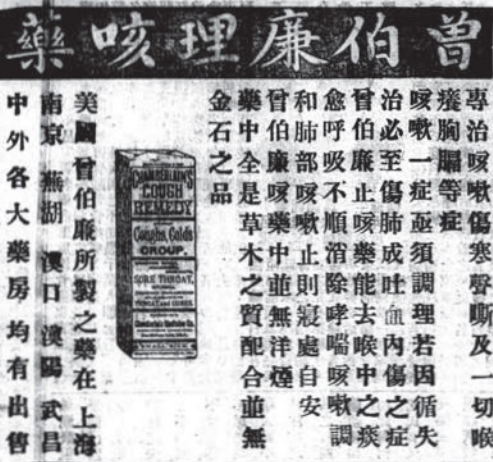 曾伯廉理咳藥
專治咳嗽傷寒聲嘶及一切喉
癢胸膈等症
咳嗽一症亟須調理若因循失
治必至傷肺成吐血內傷之症
曾伯廉止咳藥能去喉中之痰
愈呼吸不順消除哮喘咳嗽調
和肺部咳嗽止則寢處自安
曾伯廉咳藥中並無洋煙
藥中全是草木之質配合並無
金石之品
CHAMBERLAIN'S
COUGH
REMEDY
Coughs, Colds
CROUP,
SORE THROAT,
美國曾伯廉所製之藥在 上海
南京 蕪湖 漢口 漢陽 武昌
中外各大藥房 均有出售